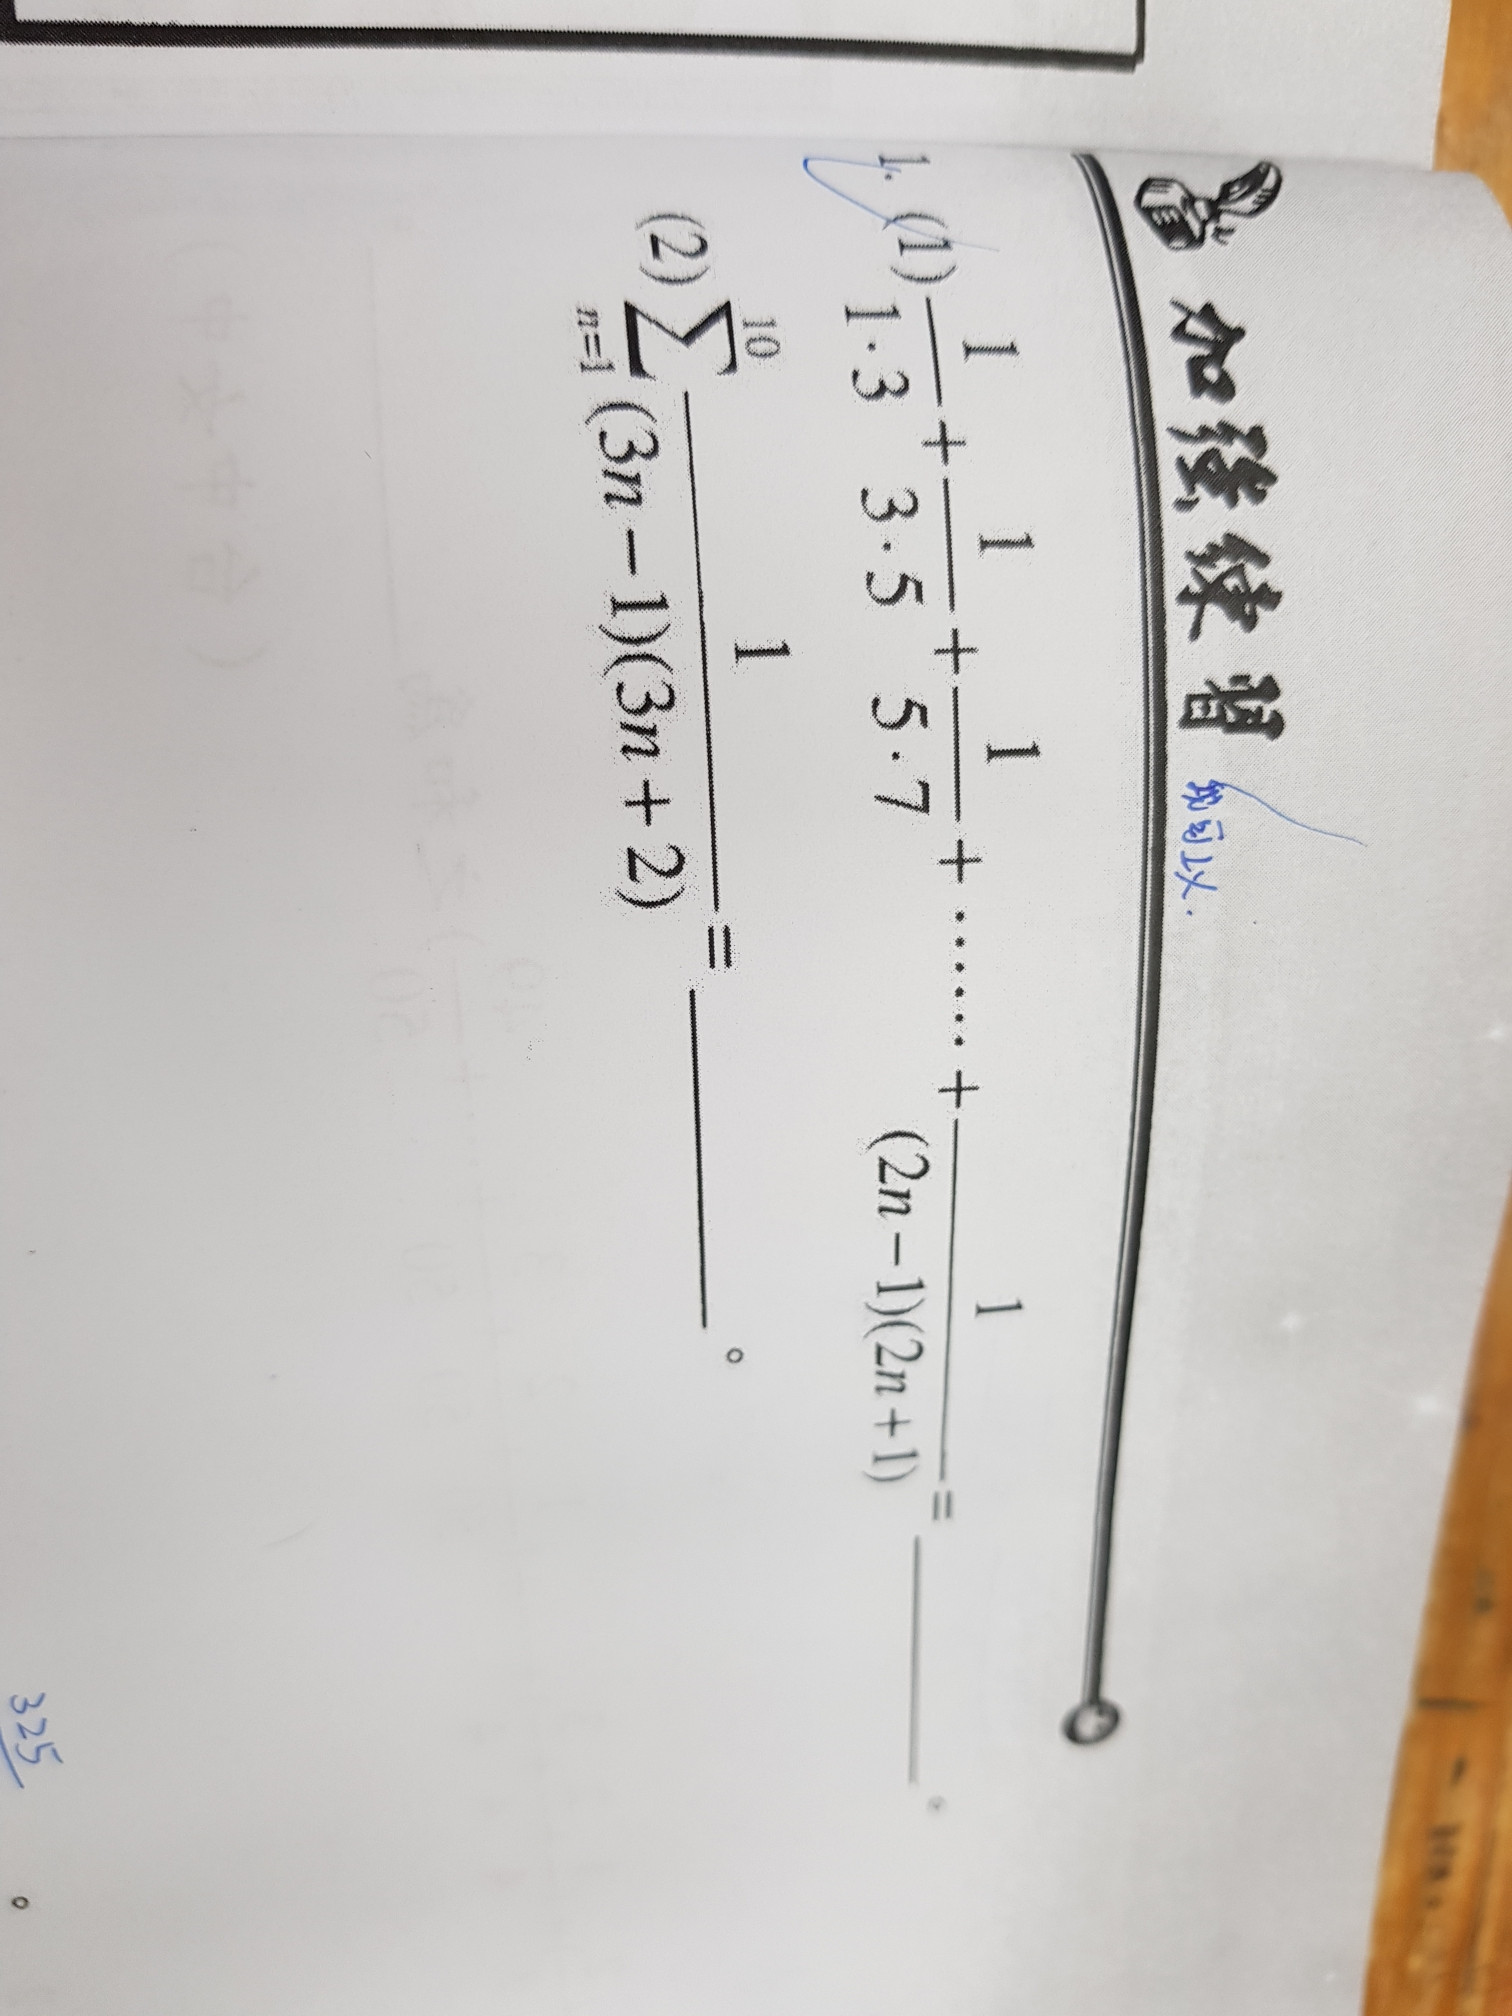 加強練習
1. (1) 1/(1·3) + 1/(3·5) + 1/(5·7) + …… + 1/((2n−1)(2n+1)) = ______。
(2) ∑_{n=1}^{10} 1/((3n−1)(3n+2)) = ______。
325